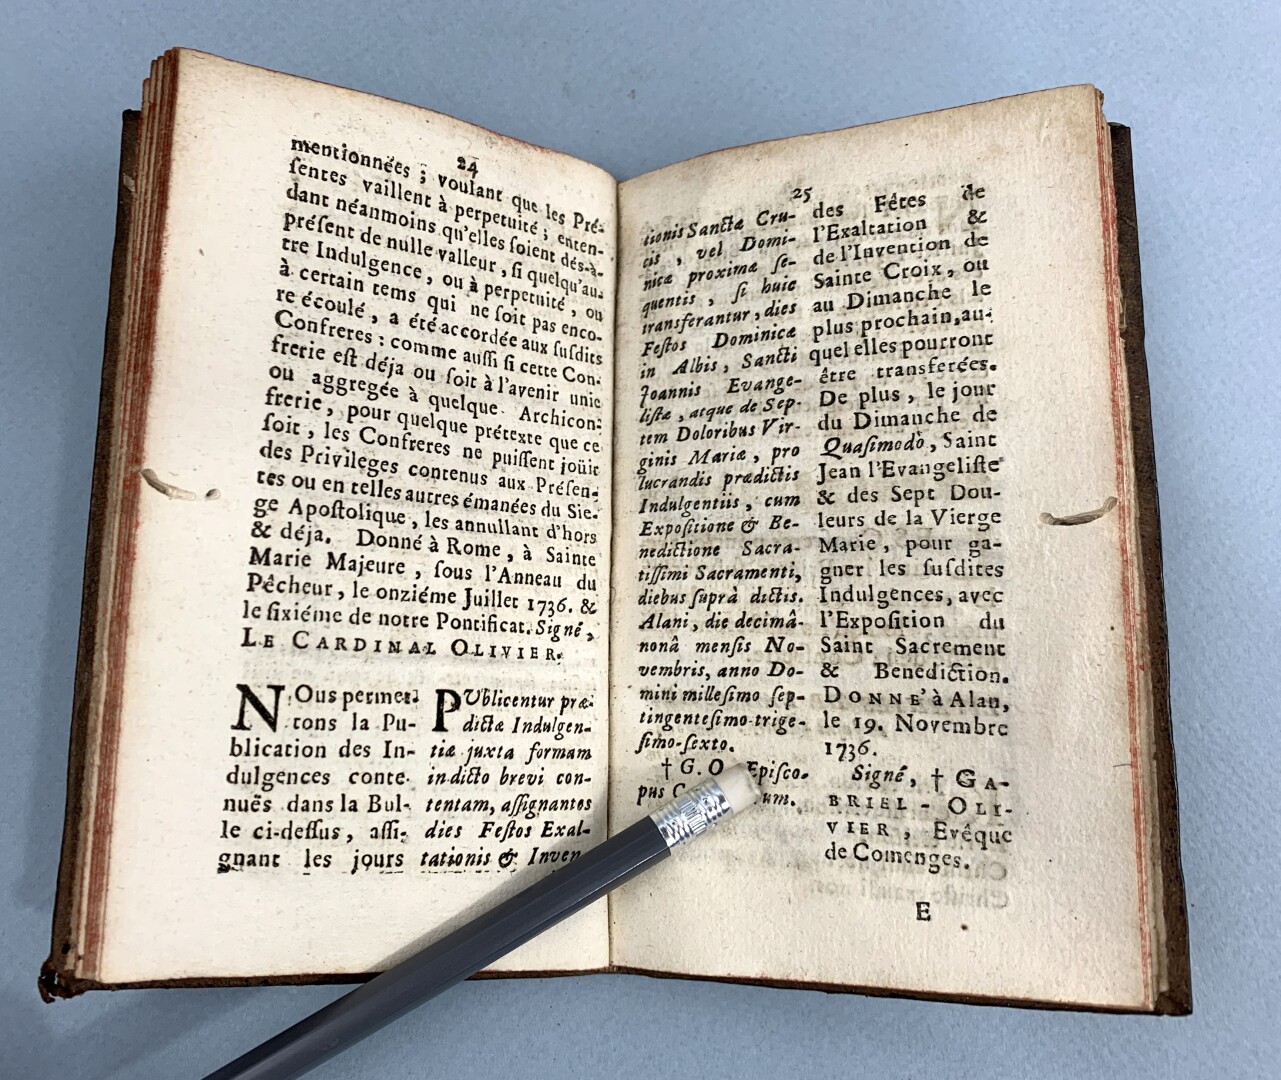 24
mentionnées ; voulant que les Pré-
ſentes vaillent à perpetuité ; enten-
dant néanmoins qu'elles ſoient dés-à-
préſent de nulle valleur, ſi quelqu'au-
tre Indulgence, ou à perpetuité, ou
à certain tems qui ne ſoit pas enco-
re écoulé, a été accordée aux ſuſdits
Confreres : comme auſſi ſi cette Con-
frerie eſt déja ou ſoit à l'avenir unie
ou aggregée à quelque Archicon-
frerie, pour quelque prétexte que ce
ſoit, les Confreres ne puiſſent joüir
des Privileges contenus aux Préſen-
tes ou en telles autres émanées du Sie-
ge Apoſtolique, les annullant d'hors
& déja. Donné à Rome, à Sainte
Marie Majeure, ſous l'Anneau du
Pêcheur, le onziéme Juillet 1736. &
le ſixiéme de notre Pontificat. Signé,
LE CARDINAL OLIVIER.
NOus permet-
tons la Pu-
blication des In-
dulgences conte-
nuës dans la Bul-
le ci-deſſus, aſſi-
gnant les jours
PUblicentur præ-
dictæ Indulgen-
tiæ juxta formam
in dicto brevi con-
tentam, aſſignantes
dies Feſtos Exal-
tationis & Inven-
25
tionis Sanctæ Cru-
cis, vel Domi-
nicæ proximæ ſe-
quentis, ſi huic
transferantur, dies
Feſtos Dominicæ
in Albis, Sancti
Joannis Evange-
liſtæ, atque de Sep-
tem Doloribus Vir-
ginis Mariæ, pro
lucrandis prædictis
Indulgentiis, cum
Expoſitione & Be-
nedictione Sacra-
tiſſimi Sacramenti,
diebus ſuprà dictis.
Alani, die decimâ-
nonâ menſis No-
vembris, anno Do-
mini milleſimo ſep-
tingenteſimo-trige-
ſimo-ſexto.
† G. O. Epiſco-
pus C um.
des Fêtes de
l'Exaltation &
de l'Invention de
Sainte Croix, ou
au Dimanche le
plus prochain, au-
quel elles pourront
être transferées.
De plus, le jour
du Dimanche de
Quaſimodò, Saint
Jean l'Evangeliſte
& des Sept Dou-
leurs de la Vierge
Marie, pour ga-
gner les ſuſdites
Indulgences, avec
l'Expoſition du
Saint Sacrement
& Benediction.
DONNE' à Alan,
le 19. Novembre
1736.
Signé, † GA-
BRIEL - OLI-
VIER, Evêque
de Comenges.
E